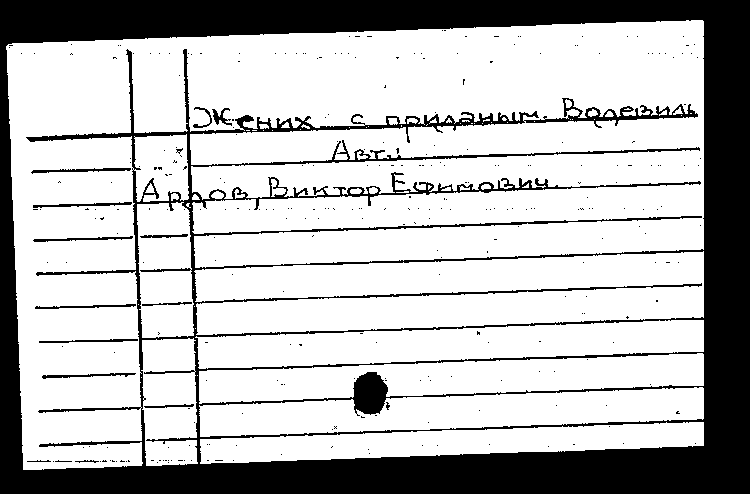 Жених с приданым. Водевиль
Авт.:
Ардов, Виктор Ефимович.